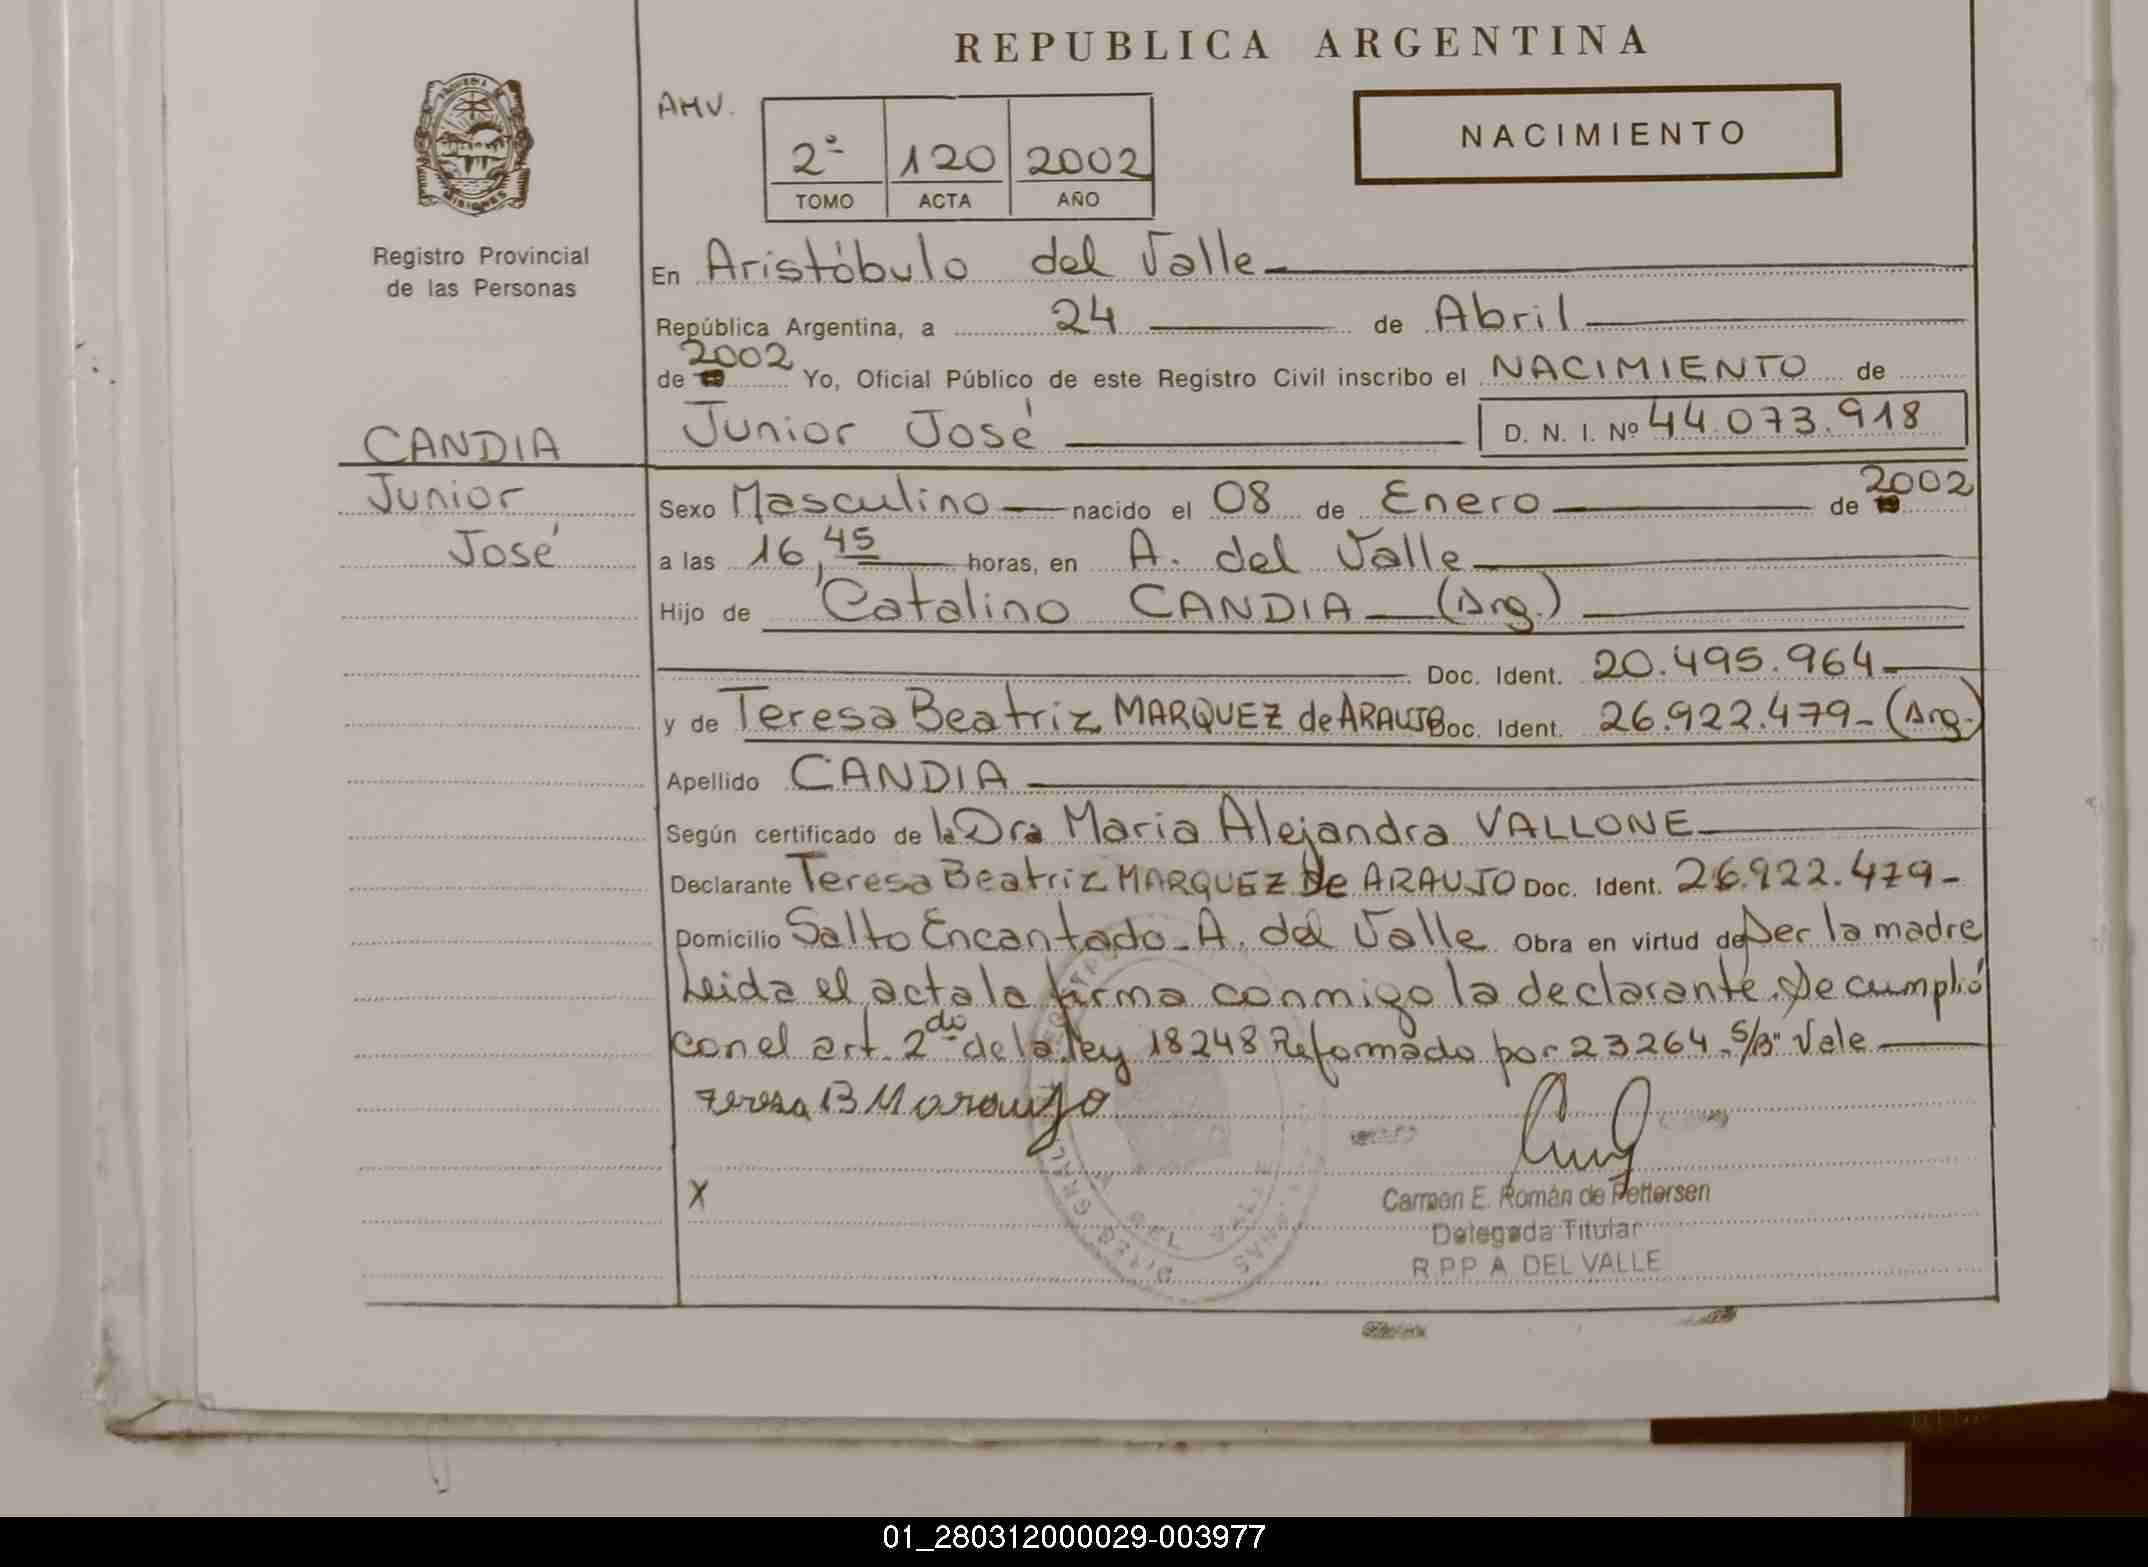 REPUBLICA ARGENTINA
AMV.
2º 120 2002
TOMO ACTA AÑO
NACIMIENTO
MISIONES
Registro Provincial
de las Personas
En Aristóbulo del Valle
República Argentina, a 24 de Abril
2002
de Yo, Oficial Público de este Registro Civil inscribo el NACIMIENTO de
Junior José D. N. I. Nº 44.073.918
CANDIA
Junior
José
Sexo Masculino nacido el 08 de Enero de 2002
a las 16,45 horas, en A. del Valle
Hijo de Catalino CANDIA (Arg.)
Doc. Ident. 20.495.964
y de Teresa Beatriz MARQUEZ de ARAUJO Doc. Ident. 26.922.479- (Arg.)
Apellido CANDIA
Según certificado de la Dra Maria Alejandra VALLONE
Declarante Teresa Beatriz MARQUEZ De ARAUJO Doc. Ident. 26.922.479-
Domicilio Salto Encantado - A. del Valle Obra en virtud de Ser la madre
Leida el acta la firma conmigo la declarante. Se cumplió
con el art. 2do de la ley 18248 Reformada por 23264. S/B" Vale
Teresa B M
X
Carmen E. Román de Pettersen
Delegada Titular
R.P.P A. DEL VALLE
01_280312000029-003977